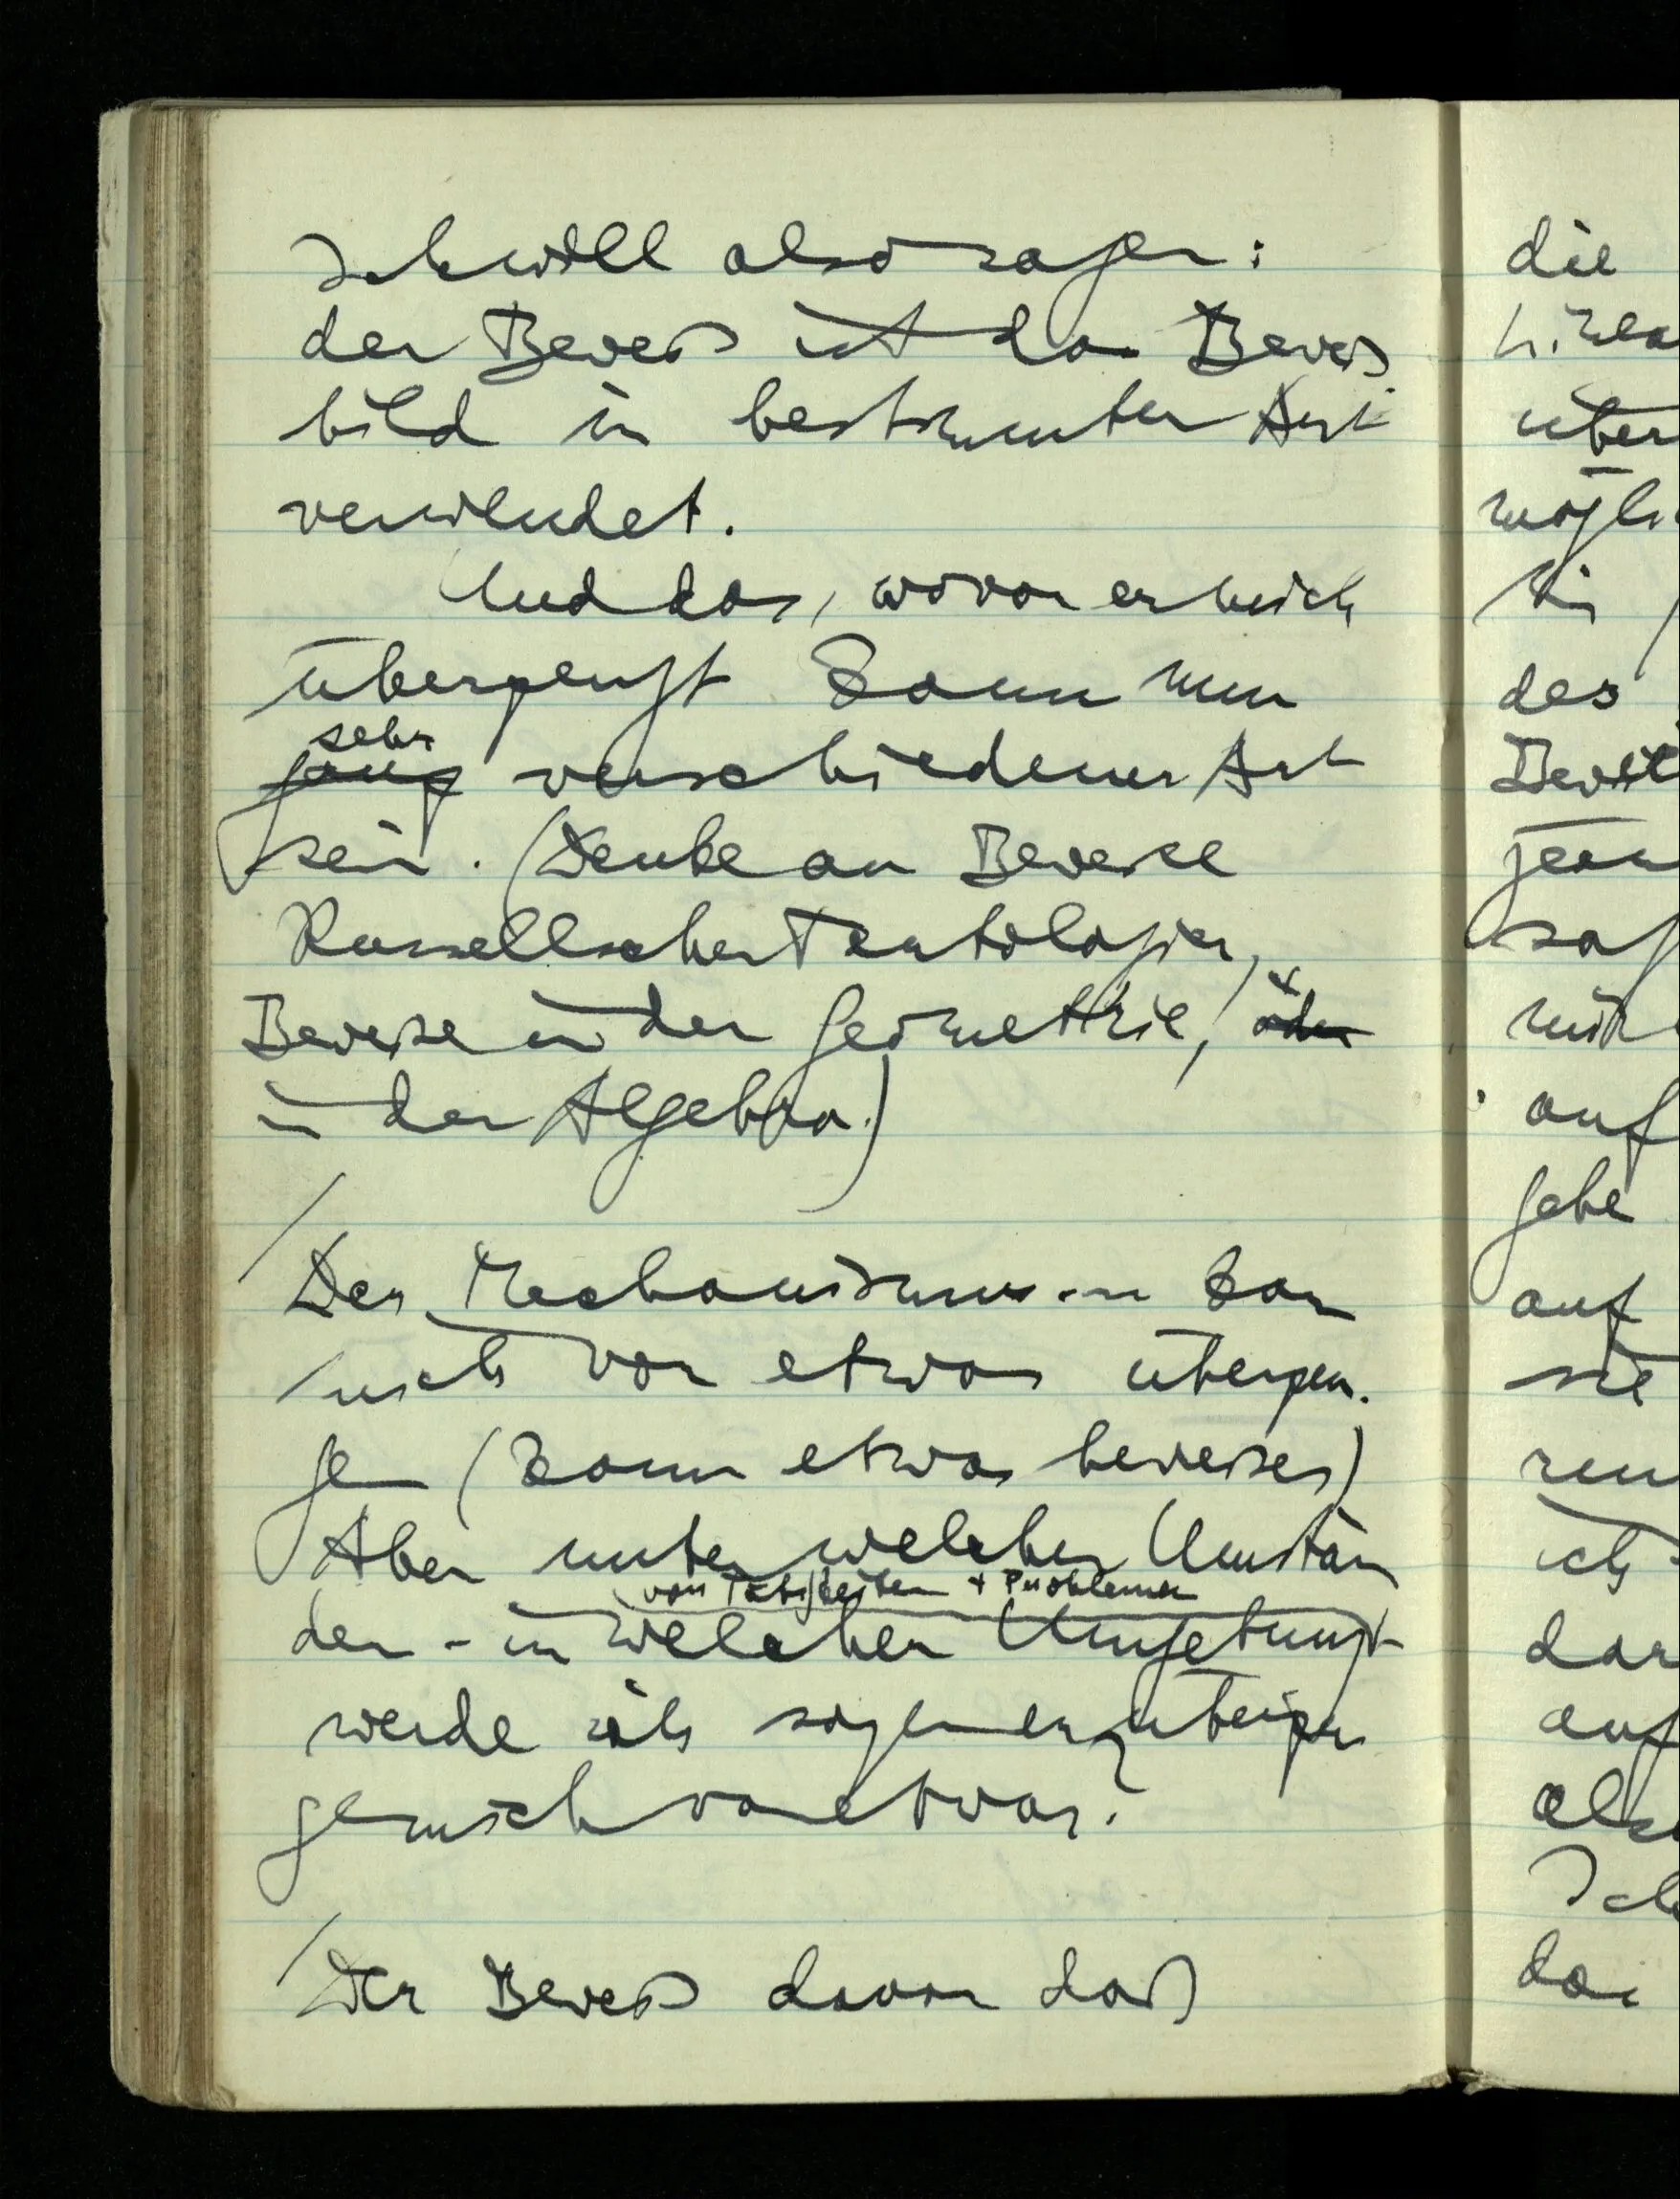 Ich will also sagen:
der Beweis ist das Beweis-
bild in bestimmter Art
verwendet.
Und das, wovon er mich
überzeugt kann nun
sehr
ganz verschiedener Art
sein. (Denke an Beweise
Russellscher Tautologien,
Beweise in der Geometrie, + oder
in der Algebra.)
/
Der Mechanismus kann
mich von etwas überzeu-
gen (kann etwas beweisen)
Aber unter welchen Umstän
den - in welcher Umgebung
von Tätigkeiten + Problemen
werde ich sagen er überzeu
ge mich von etwas?
/ Der Beweis davon daß
die
über
mögli
des
sag
mir
auf
gebe
auf
sie
ich
dar
auf
als
Ich